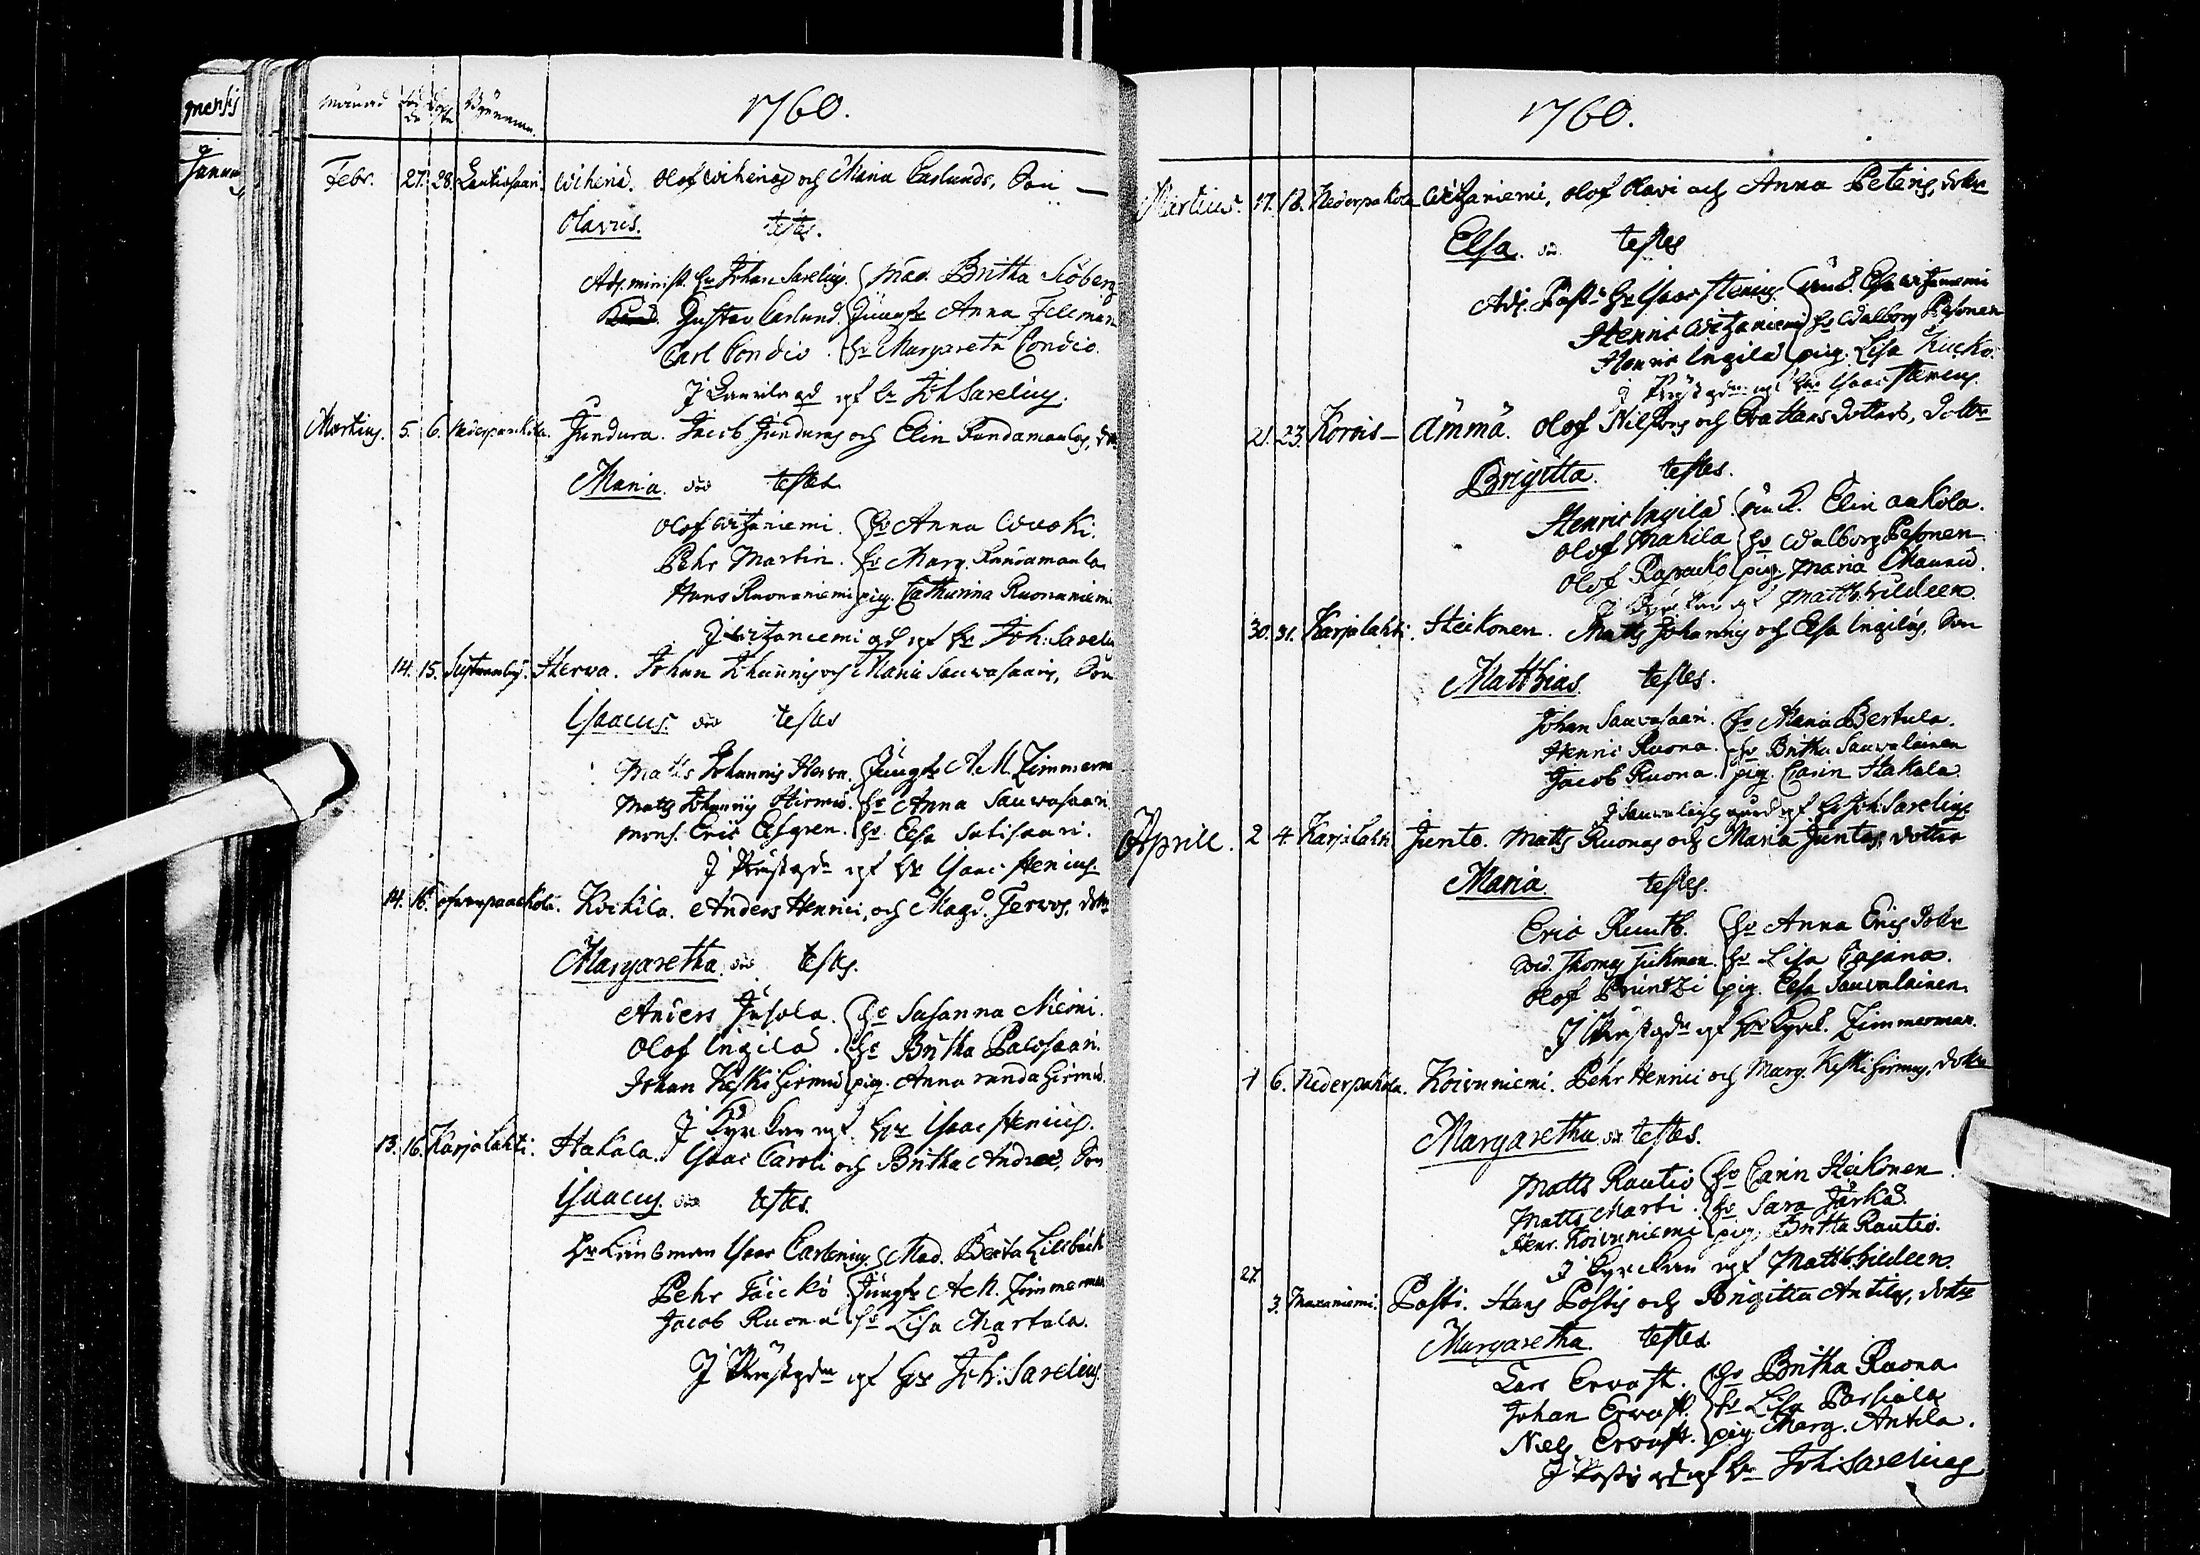 mensis
Januar
månad födde döpte Byarnamn. 1760.
Febr. 27. 28. Lautiosaari. Wiheriä. Olof Wiheriäs och Maria Carlunds, Son
Olavus. testes.
Adj. minist. Hr Johan Sarelius. Mad. Britha Siöberg
Gustav Carlund. Jungfr Anna Fellman
Carl Condio. hr Margareta Condio.
J Laurila gd af hr Joh Sarelius.
Martius. 5. 6. Nederpaackola. Jundura. Jacob Junduras och Elin Randamaulas, dr
Maria. testes
Olof Witzaniemi. hr Anna Woki.
Pehr Martin. hr Marg. Randamaula
Hans Ruonaniemi pig. Catharina Ruonaniemi
J Witzaniemi gd af hr Joh: Sareliu
14. 15. Herva. Johan Johannis och Maria Sauvasaaris, Son
Isaacus. testes
Matts Johannis Herva. Jungfr A M. Zimmerm
Matts Johannis Hirmu. hr Anna Sauvasaari
Mons. Eric Elfgren. hr Elsa Satisaari.
J Prästgdn af Hr Isaac Stenius.
14. 16. ofwerpaackola. Kockila. Anders Henrici, och Magd. Jervos, dotr
Margaretha. testes.
Anders Jusola. hr Susanna Niemi.
Olof Ingila. hr Britha Palosaari.
Johan Keskihirmu pig. Anna randahirmu.
J Kyrckan af Hr Isaac Stenius.
13. 16. Karjalahti. Hakala. Isaac Caroli och Britha Andreæ, Son
Isaacus. testes.
Hr Länsman Isaac Carlenius. Mad. Beata Lillbäck
Pehr Täickö Jungfr A M. Zimmerman
Jacob Ruona hr Lisa Martala.
J Prästgdn af Hr Joh: Sarelius.
1760.
Martius. 17. 18. Nederpakola Witzaniemi, Olof Olavi och Anna Peteris, dotr
Elsa. testes
Adj. Past. Hr Isaac Stenius. Elsa Witzaniemi
Henric Witzaniemi hr Walborg Pesonen
Henric Ingila pig. Lisa Kucko.
J Prästgdn af Hr Isaac Stenius.
21. 23. Korvis Ämmä. Olof Nilssons och Eva Hans dotters, dotter
Brigitta. testes.
Henric Ingila. Elin aakola.
Olof Mahila hr Walborg Pesonen
Olof Rapacko pig. Maria Maunu.
J Kyrckan af Matth: Gildeen.
30. 31. Karjalahti. Heikonen. Matts Johannis och Elsa Ingilas, Son
Matthias. testes.
Johan Sauvosaari. hr Maria Bertula.
Henric Ruona. hr Britha Sauvalainen
Jacob Ruona. pig. Carin Hakala.
J Sauvalais gård af Hr Joh: Sarelius.
Aprill. 2 4. Karjalahti Junto. Matts Ruonas och Maria Juntos, dotter
Maria. testes.
Eric Ruuth. hr Anna Erics dotr
Thomas Fickman. hr Lisa Cajana.
Olof Pruntzi pig. Elsa Sauvalainen.
J Prästgdn af Hr Kyrk. Zimmerman.
1 6. Nederpakola. Koivuniemi. Pehr Henrici och Marg. Keskihirmus, dotr
Margaretha testes.
Matts Rautio hr Carin Heikonen
Matts Marti. hr Sara Järkä.
Henr. Koivuniemi pig. Britha Rautio.
J Kyrckan af Matth: Gildeen.
27. 3. Maxaniemi. Posti. Hans Postis och Brigitta Antilas, dotr
Margaretha. testes
Lars Ervast. hr Britha Ruona.
Johan Ervast. hr Lisa Parsiala
Niels Ervast. pig. Marg. Antila.
J Postis gd af hr Joh: Sarelius